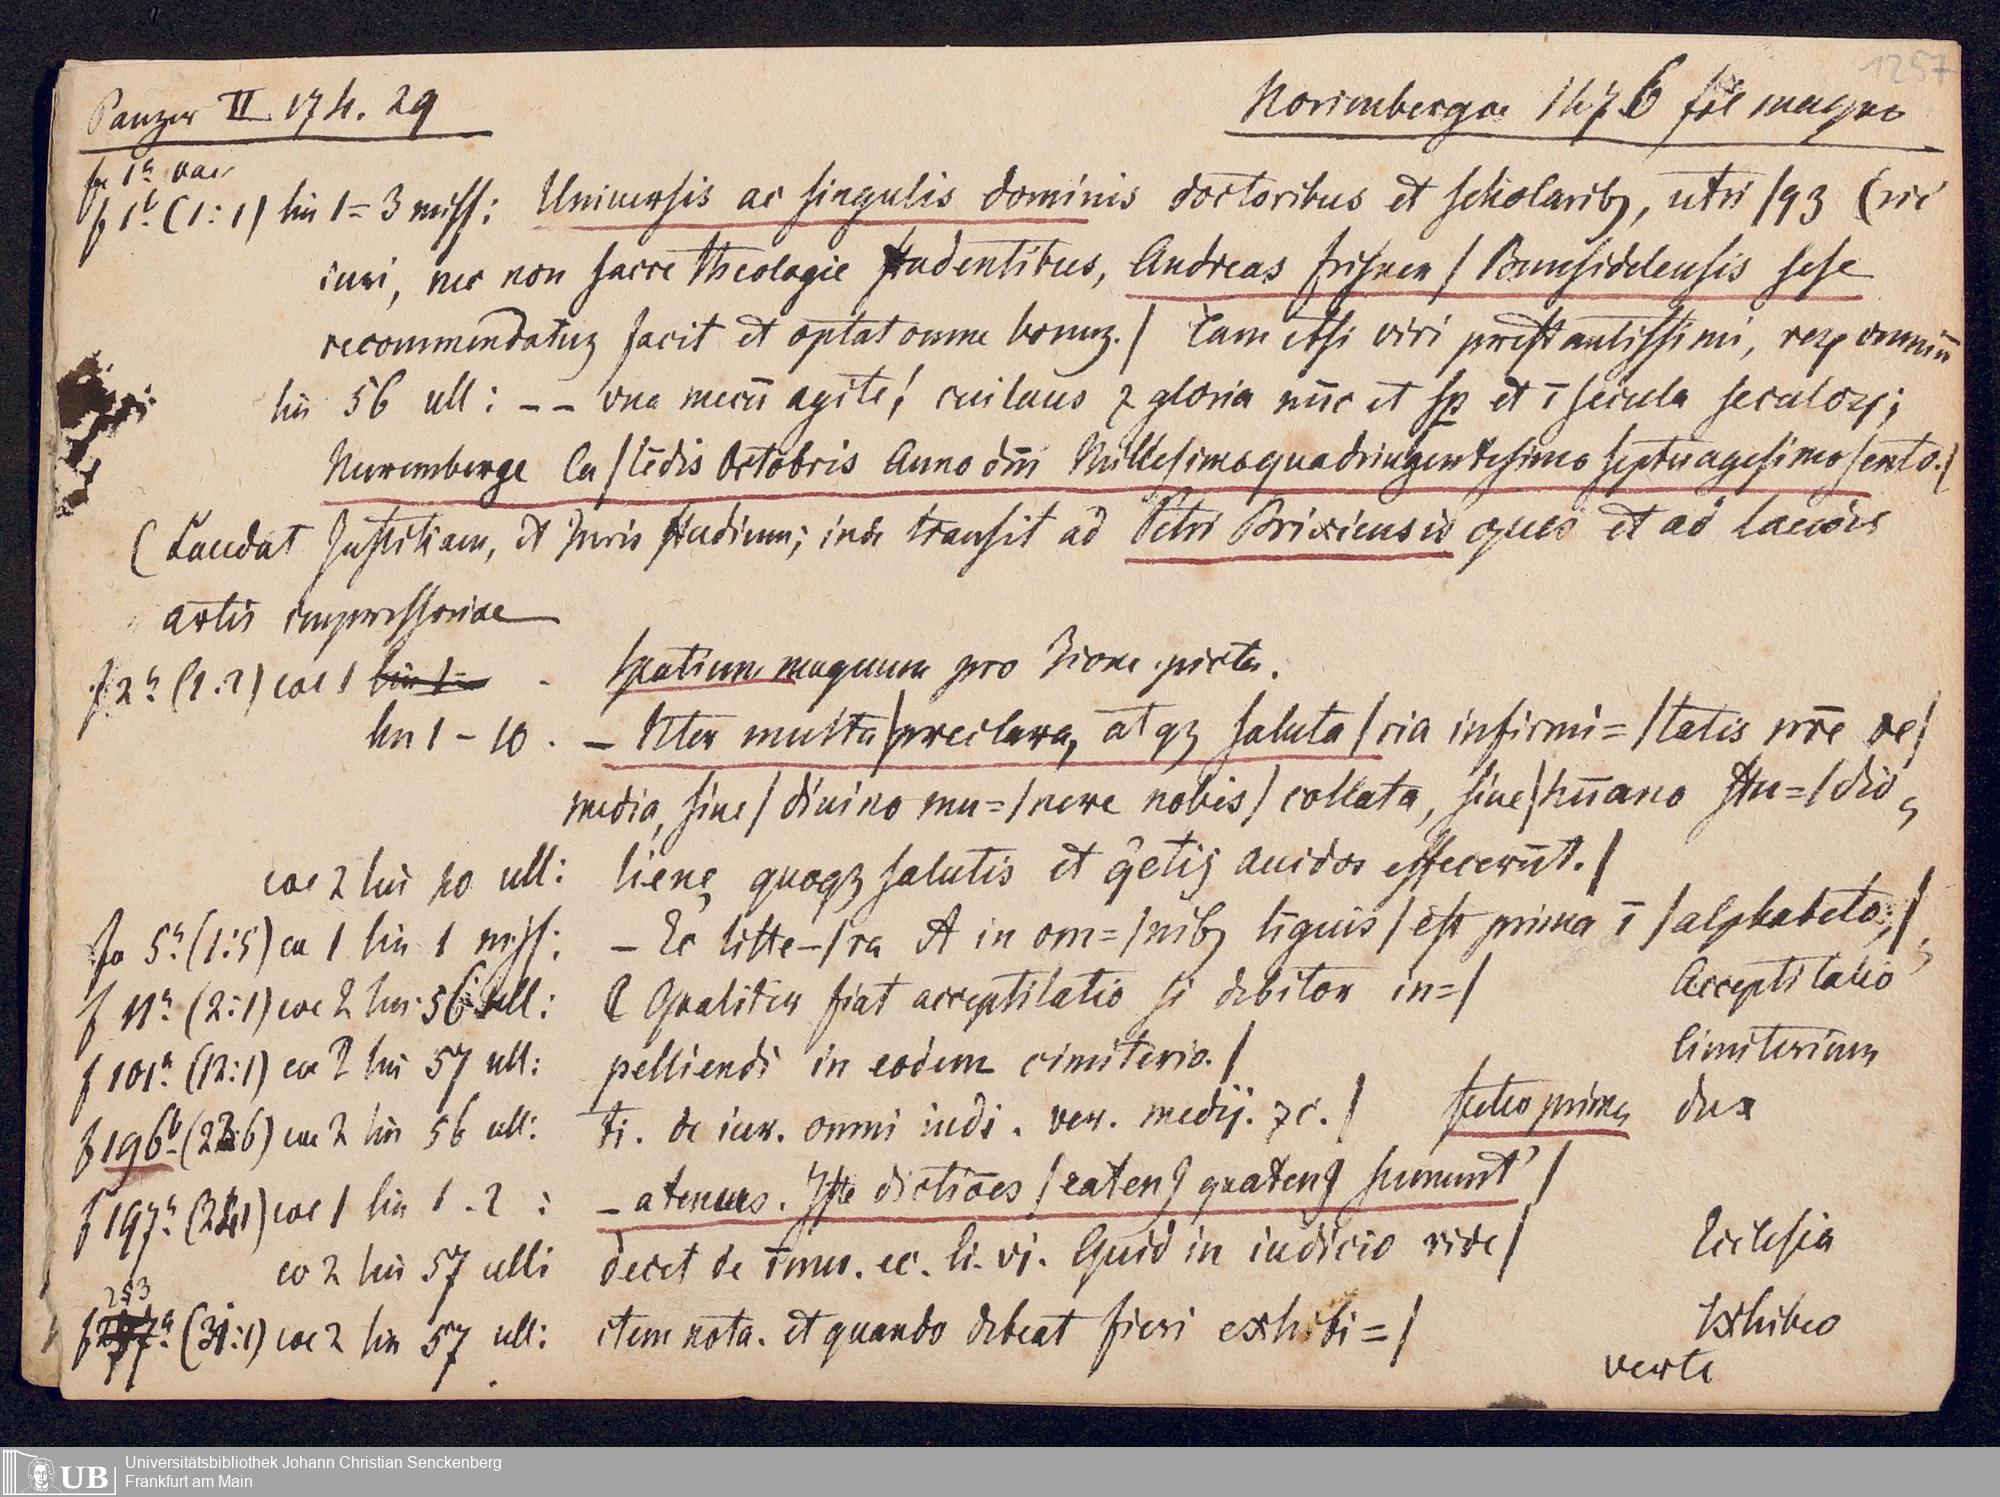 1257
Panzer II 174. 29 Norimbergae 1476 fol magno
fo 1a vac
f 1b (1:1) lin 1=3 miss: Uniuersis ac singulis dominis doctoribus et scholaribz, utri/qz
iuri, nec non sacre theologie studentibus, Andreas frisner / Bunsidelensis sese
recommendatuz facit et optat omne bonuz./ Tam etsi viri prestantissimi, omniū
lin 56 ull: -- vna mecū agite! cui laus z gloria nūc et sp et ī secula seculorz;
Nuremberge Ca/lēdis Octobris Anno dni Millesimoquadringentesimo septuagesimo sexto./
(Laudat Justitiam, et Juris studium; inde transit ad Petri Brixiensis et ad laudes
artis impressoriae
f 2a (1:2) coe 1 lin 1= - spatium magnum pro Icone picta.
lin 1 - 10. - Nter multa/preclara, atqz saluta/ria infirmi=/tatis nr̄e re/
media, siue/ diuino mu=/nere nobis/ collata, siue/hūano stu=/dio,
coe 2 lin ull: liene quoqz salutis et q̄etis auidos effecerūt./
fo 5a (1:5) co 1 lin 1 miss: - Ec litte-/ra A in om=/nibz līguis/ est prima ī /alphabeto;/
f 11a (2:1) coe 2 lin 56 ull: C Qualiter fiat acceptilatio si debitor in=/ Acceptilatio
f 101a (12:1) coe 2 lin 57 ull: pelliendi in eodem cimiterio./ Cimiterium
f 196b (23:6) coe 2 lin 56 ull: ti. de iur. omni iudi. ver. medij. zc./ sectio prima dux
f 197a (24:1) coe 1 lin 1-2: - atenus. Iste dictiōes /eaten9 quaten9 sumunt' /
co 2 lin 57 ull: decet de īmu. ec. li. vi. Quid in iudicio / Ecclesia
253
f 257a (31:1) coe 2 lin 57 ull: item nota. et quando debeat fieri exhibi=/ Exhibeo
verte
UB
Universitätsbibliothek Johann Christian Senckenberg
Frankfurt am Main